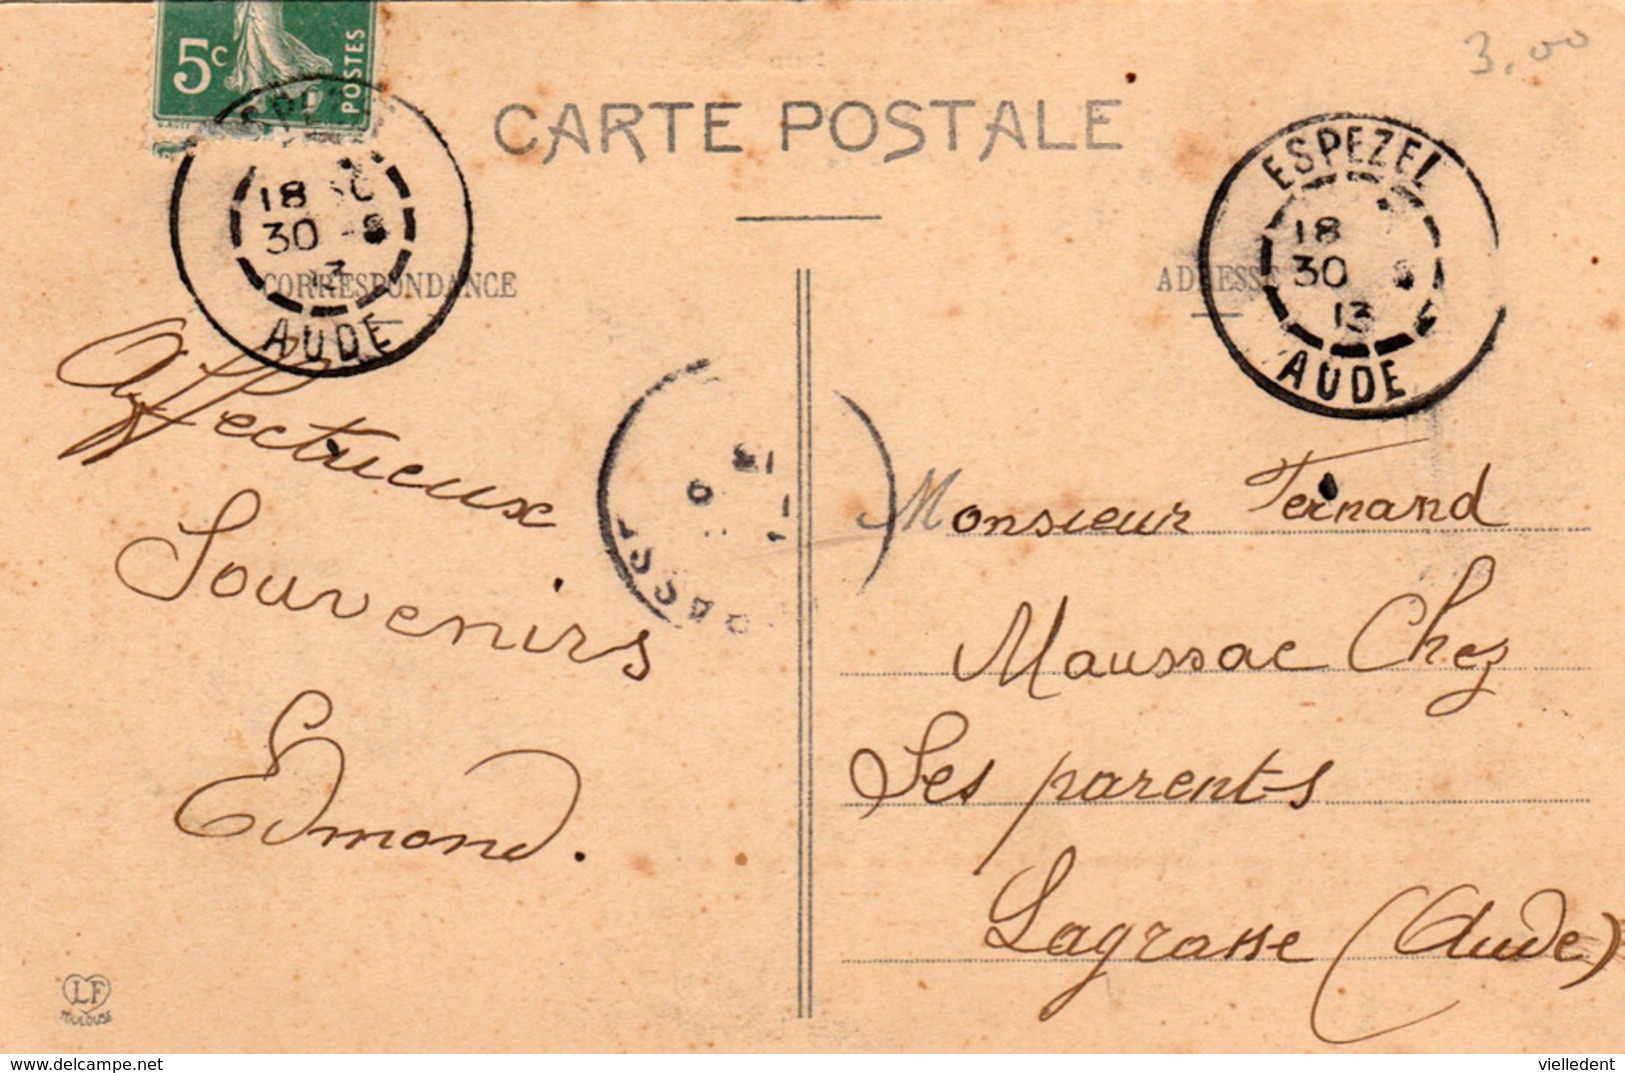 5c
POSTES
3.00
CARTE POSTALE
18
30 -8
13
AUDE
ESPEZEL
18
30 8
13
AUDE
CORRESPONDANCE
ADRESSE
Affectrueux
Souvenirs
Edmond.
Monsieur Fernand
Maussac Chez
Ses parents
Lagrasse (Aude)
LF
TOULOUSE
https://www.delcampe.net
vielledent